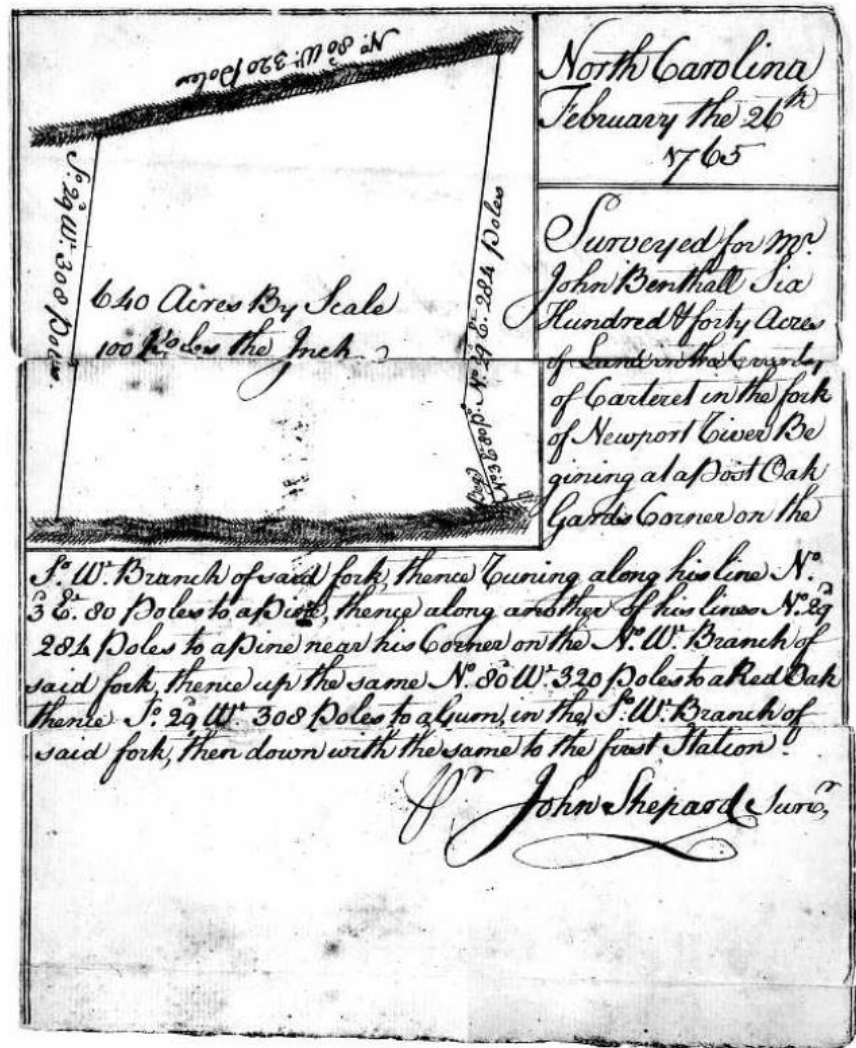 No. 80 Wt. 320 Poles
So. 29 Wt. 308 Poles
640 Acres By Scale
100 Poles the Inch
No. 29 Et. 284 Poles
No. 3 E. 80 Po.
Beg
North Carolina
February the 26th
1765
Surveyed for Mr.
John Benthall Six
Hundred & forty Acres
of Land in the County
of Carteret in the fork
of Newport River Be
gining at a Post Oak
Gards Corner on the
So. Wt. Branch of said fork, thence Runing along his line No.
3 Et. 80 Poles to a Pine, thence along another of his lines No. 29
284 Poles to a Pine near his Corner on the No. Wt. Branch of
said fork, thence up the same No. 80 Wt. 320 Poles to a Red Oak
thence So. 29 Wt. 308 Poles to a Gum, in the So. Wt. Branch of
said fork, then down with the same to the first Station.
Pr John Shepard Survr,